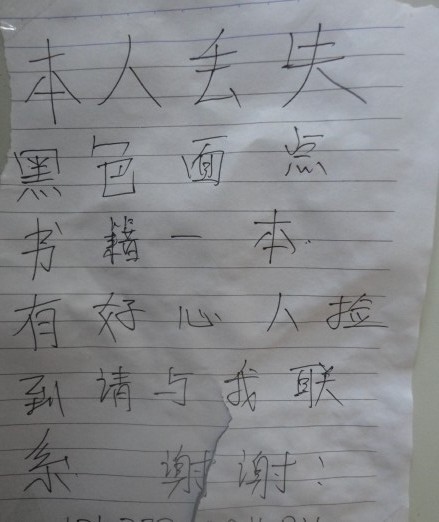 本人丢失
黑色面点
书籍一本.
有好心人捡
到请与我联
系 谢谢!